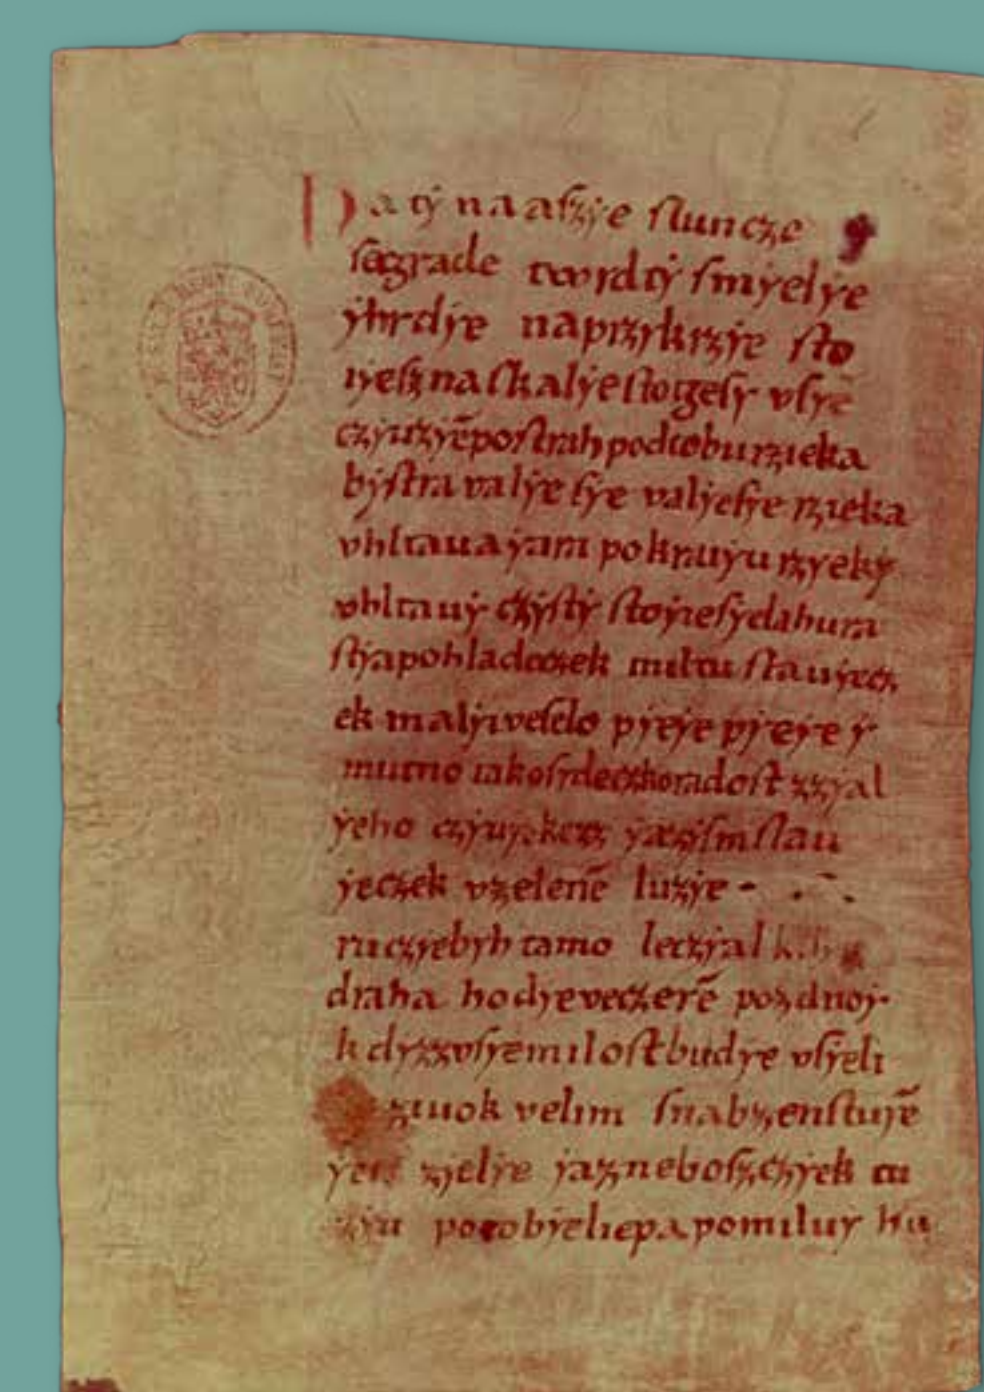 Ha ty naaſzie ſluncze
ſegrade twrdtý ſmyelye
ýhrdye naprzykrzye ſto
iyeſz na ſkalye ſtogeſy vſye
czyuzyē poſtrah pod tobu rzieka
býſtra valye ſye valyeſye rzieka
vhltaua ýara po kraýu rzyeký
vhltauý czýſtý ſtoýieſýe la hura
ſtýapohladeczek miltu ſtauyecz
ek malý veſelo pyeýe pyeýe ý
mutno iakoſrdeczko radoſt zzýal
ýeho czýuýe keez ýazýſm ſlau
ýeczek vzelenē luzýe
ruczýebyh tamo leczýal
draha hodýe veczerē pozdnoý
kdýzz vſýe miloſt budýe vſýeli
ziuok velim ſnabzenſtuýē
zýelýe ýaz neboſzczýek tu
potobýe liepa pomiluý hu